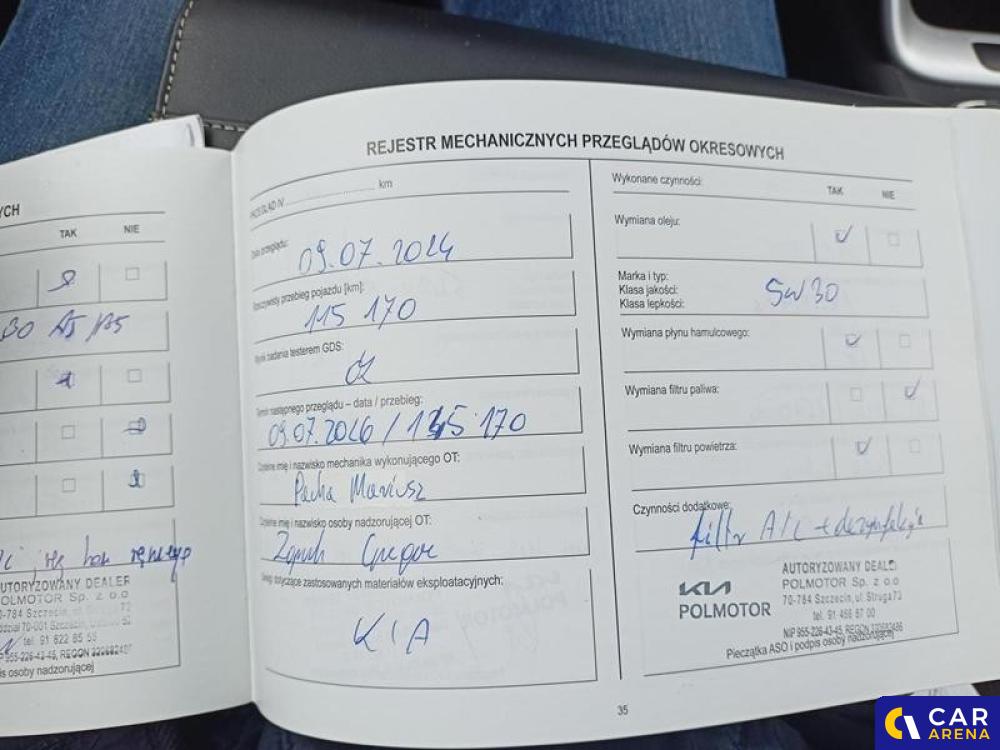 YCH
TAK NIE
30 A5/B5
AUTORYZOWANY DEALER
POLMOTOR Sp. z o.o
70-784 Szczecin, ul. Struga 73
tel. 91 822 85 55
NIP 955-226-43-45, REGON
pis osoby nadzorującej
REJESTR MECHANICZNYCH PRZEGLĄDÓW OKRESOWYCH
PRZEGLĄD IV ........................ km
Data przeglądu:
09.07.2024
Rzeczywisty przebieg pojazdu [km]:
115 170
Wynik badania testerem GDS:
OK
Termin następnego przeglądu – data / przebieg:
09.07.2026 / 145 170
Czytelne imię i nazwisko mechanika wykonującego OT:
Pacha Mariusz
Czytelne imię i nazwisko osoby nadzorującej OT:
Uwagi dotyczące zastosowanych materiałów eksploatacyjnych:
KIA
Wykonane czynności:
TAK NIE
Wymiana oleju:
Marka i typ:
Klasa jakości:
Klasa lepkości:
5W30
Wymiana płynu hamulcowego:
Wymiana filtru paliwa:
Wymiana filtru powietrza:
Czynności dodatkowe:
filtr A/C + dezynfekcja
KIA
POLMOTOR
AUTORYZOWANY DEALER
POLMOTOR Sp. z o.o
70-784 Szczecin, ul. Struga 73
tel. 91 456 87 00
NIP 955-226-43-45, REGON 320682486
Pieczątka ASO i podpis osoby nadzorującej
35
CAR
ARENA